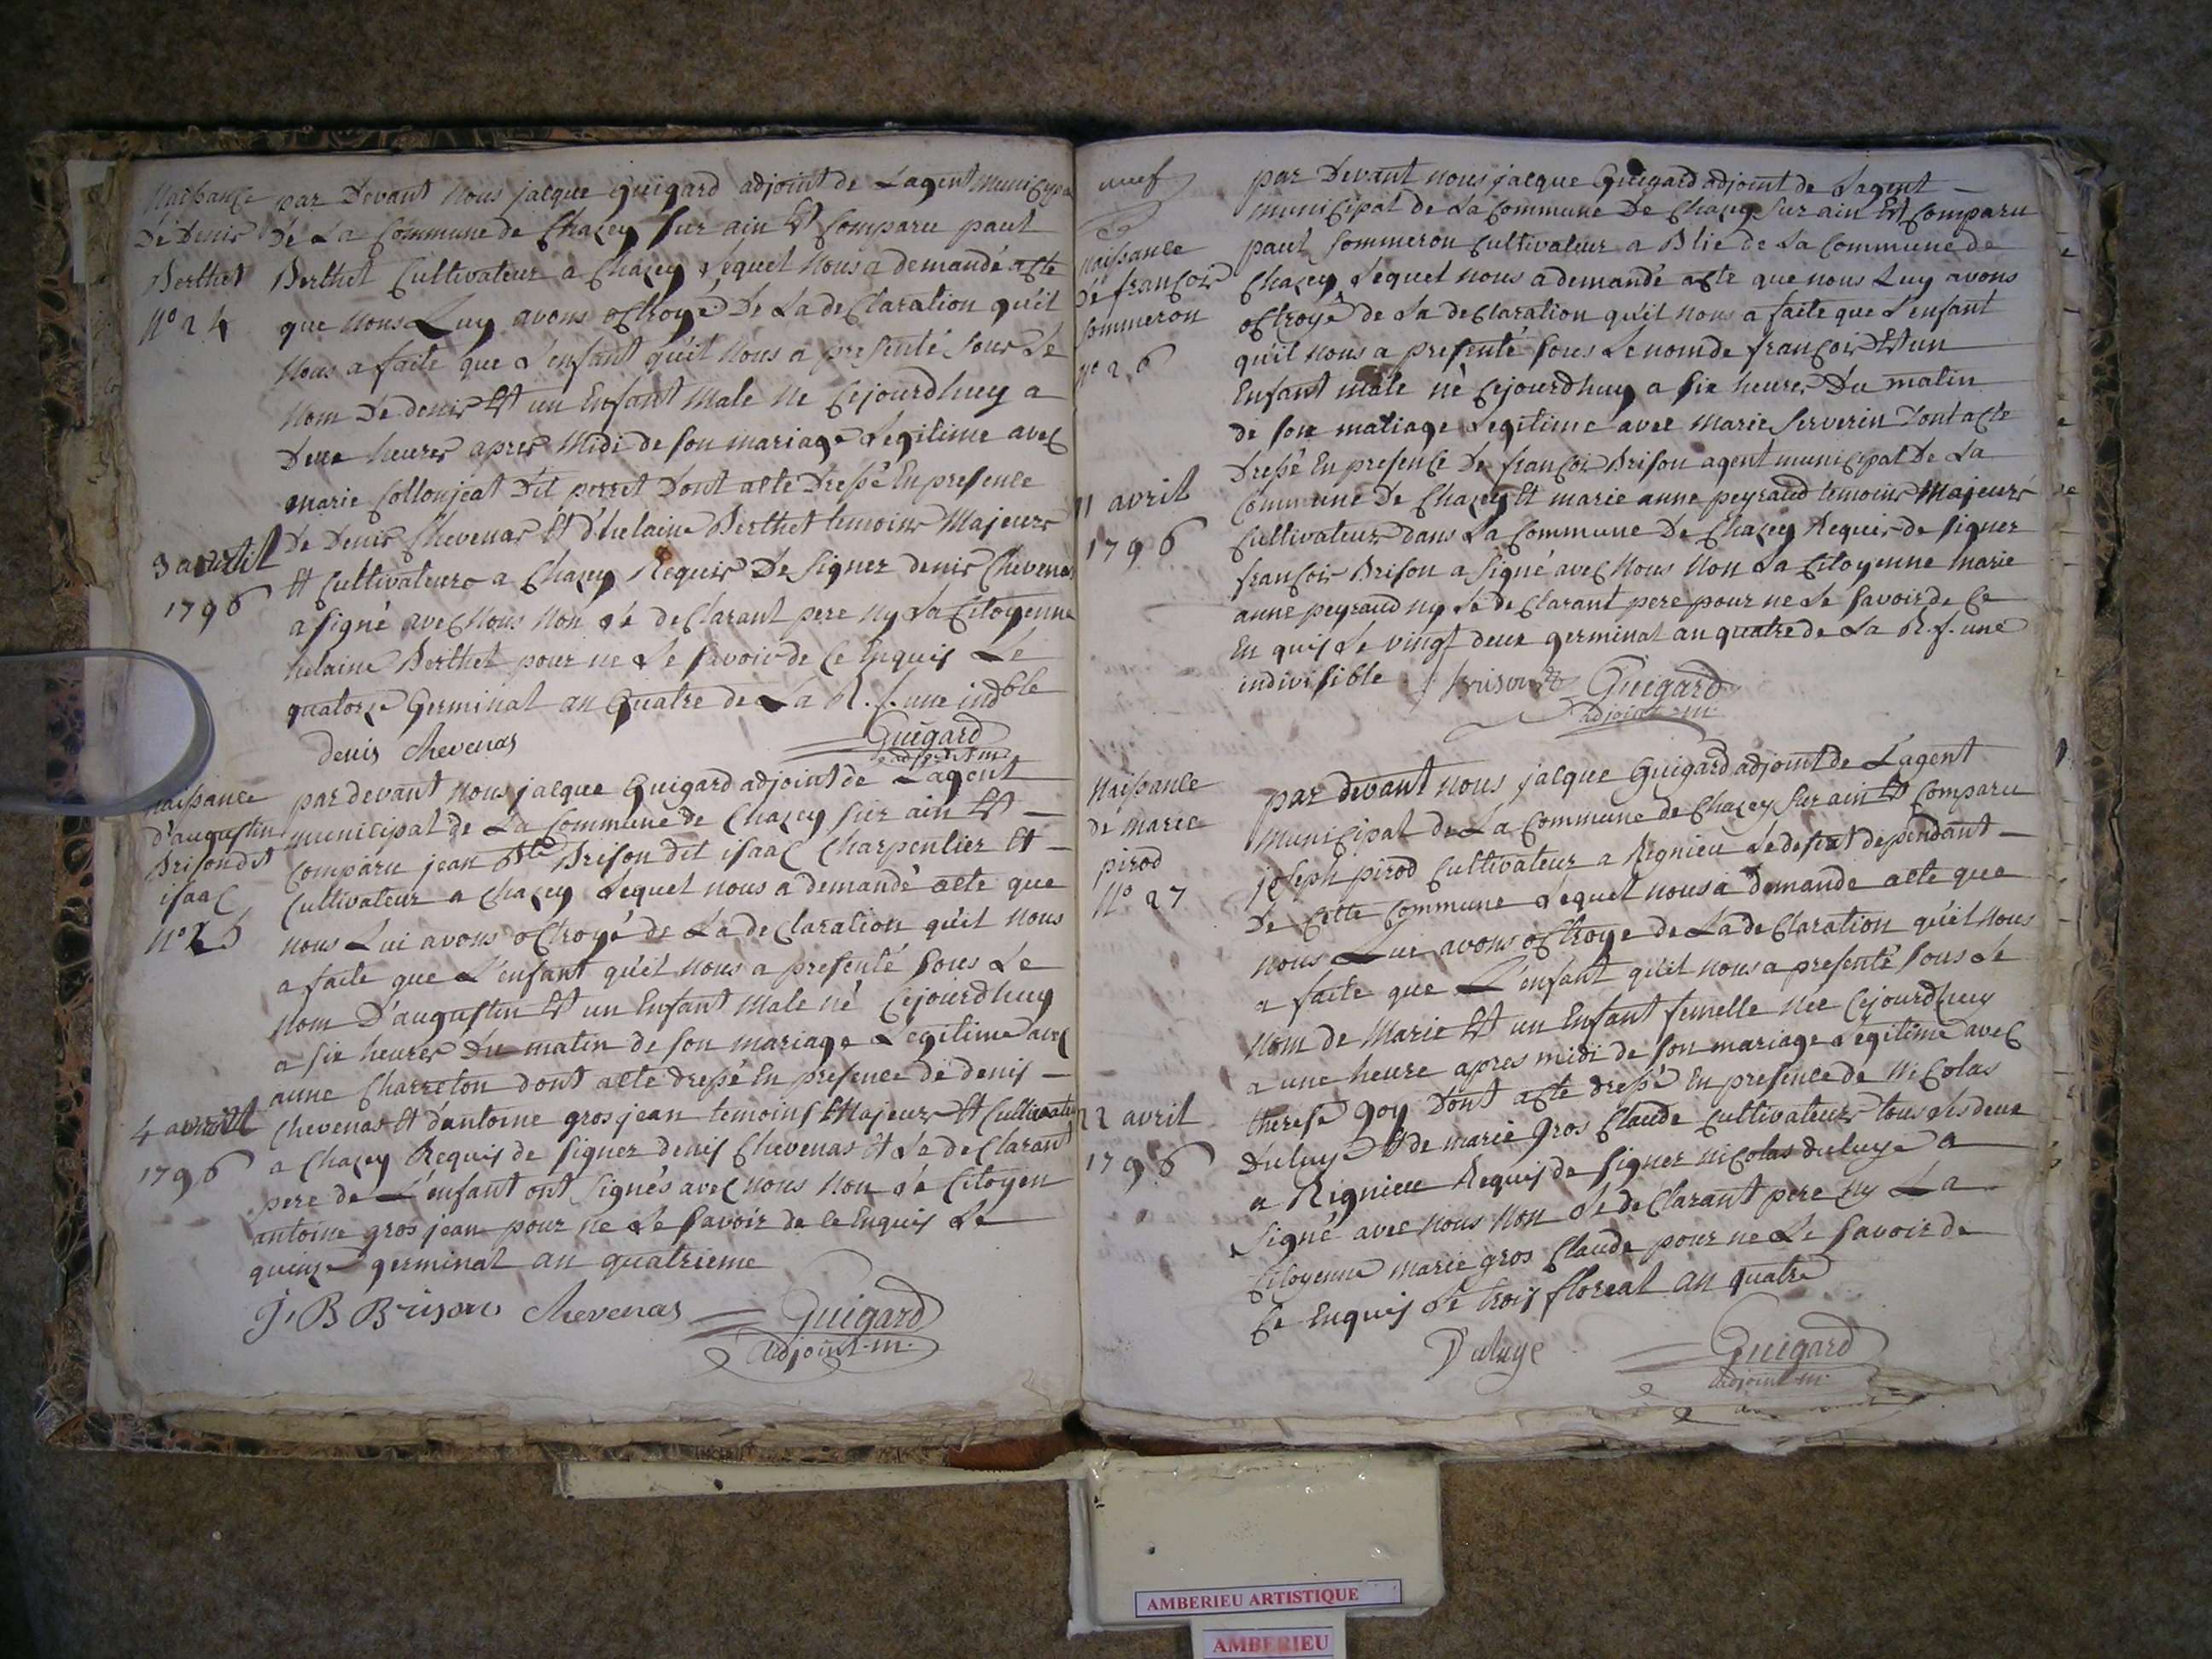 Naissance
de Denis
Berthet
N° 24
par Devant Nous jacque Guigard adjoint de Lagent Municipa
de La Commune de Chazey sur ain Est Comparu paul
Berthet Cultivateur a Chazey Lequel Nous a demandé acte
que Nous Luy avons octroyé De La deClaration qu'il
Nous a faite que L'enfant qu'il Nous a presenté sous Le
Nom De denis Est un Enfant Male Ne Cejourdhuy a
Deux heures apres Midi de son mariage Legitime avec
marie Collonjeat Dit perret Dont acte Dressé En presence
De Denis Chevenas Et d'helaine Berthet temoins Majeurs
Et Cultivateurs a Chazey Requis De Signer denis Chevenas
a signé avec Nous Non Le deClarant pere Ny La Citoyenne
helaine Berthet pour ne Le savoir de Ce Enquis Le
quatorze Germinal an Quatre de La R. f. une indble
3 avril
1796
denis chevenas
Guigard
adjoint m
naissance
d'augustin
Brison dit
isaac
N° 25
par devant Nous jacque Guigard adjoint de Lagent
municipal de La Commune de Chazey sur ain Est
Comparu jean Bte Brison dit isaac Charpentier Et
Cultivateur a Chazey Lequel nous a demandé acte que
nous Lui avons octroyé de La deClaration qu'il nous
a faite que L'enfant qu'il nous a presenté sous Le
Nom D'augustin Est un Enfant Male né Cejourdhuy
a six heures Du matin de son mariage Legitime avec
anne Charreton dont acte dressé En presence de denis
Chevenas Et d'antoine grosjean temoins Majeurs Et Cultivate
a Chazey Requis de signer denis Chevenas Et Le deClarant
pere de L'enfant ont Signés avec nous Non Le Citoyen
antoine grosjean pour ne Le savoir de Ce Enquis Le
quinze germinal an quatrieme
4 avril
1796
J. B Brison chevenas Guigard
adjoint.m.
neuf
Naissance
De françois
Sommeron
N° 26
par Devant nous jacque Guigard adjoint de Lagent
municipal de La Commune De Chazey Sur ain Est Comparu
paul Sommeron Cultivateur a Blie de La Commune de
Chazey Lequel nous a demandé acte que nous Luy avons
octroyé de La deClaration qu'il nous a faite que L'enfant
qu'il nous a presenté sous Le nom de françois Est un
Enfant male né Cejourdhuy a six heures Du matin
de son mariage Legitime avec Marie Serverin Dont acte
Dressé En presence De françois Brison agent municipal De La
Commune De Chazey Et marie anne peyraud temoins Majeurs
Cultivateurs dans La Commune De Chazey Requis de signer
françois Brison a signé avec Nous Non La Citoyenne marie
anne peyraud ny Le deClarant pere pour ne Le savoir de Ce
En quis Le vingt deux germinal an quatre de La R. f. une
indivisible
11 avril
1796
Brison Guigard
adjoint m.
Naissance
de marie
pirod
N° 27
par devant nous jacque Guigard adjoint de Lagent
Municipal de La Commune de Chazey sur ain Est Comparu
joseph pirod Cultivateur a Rignieu Le desert dependant
De Cette Commune Lequel nous a demande acte que
nous Lui avons octroye de La deClaration qu'il nous
a faite que L'enfant qu'il nous a presenté sous Le
Nom de Marie Est un Enfant femelle née Cejourdhuy
a une heure apres midi de son mariage Legitime avec
therese goy Dont acte dressé En presence de Nicolas
Duluye Et de marie Gros Claude Cultivateurs tous Les deux
a Rignieu Requis de Signer Nicolas duluye a
Signé avec Nous Non Le deClarant pere Ny La
Citoyenne marie gros Claude pour ne Le savoir de
Ce Enquis Le trois floreal an quatre
22 avril
1796
Duluye
Guigard
adjoint m.
AMBERIEU ARTISTIQUE
AMBERIEU